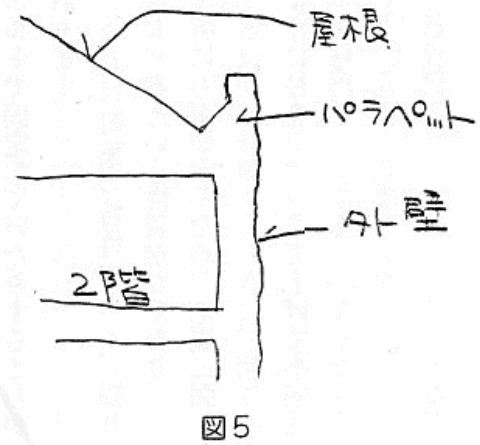 屋根
パラペット
外壁
2階
図5